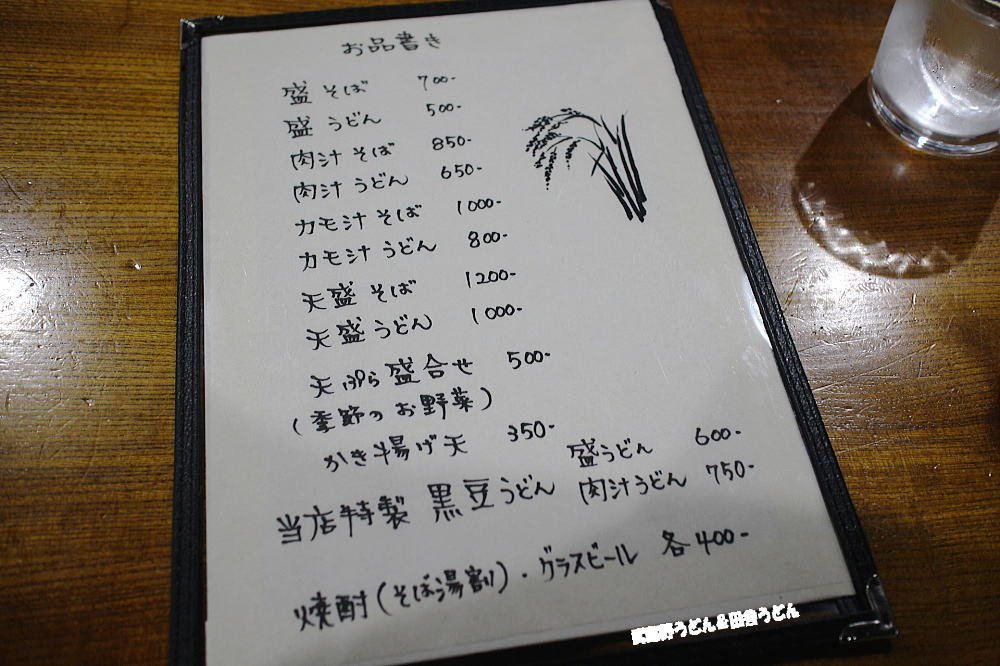 お品書き
盛 そば 700-
盛 うどん 500-
肉汁 そば 850-
肉汁 うどん 650-
カモ汁 そば 1000-
カモ汁 うどん 800-
天盛 そば 1200-
天盛 うどん 1000-
天ぷら盛合せ 500-
(季節のお野菜)
かき揚げ天 350-
当店特製 黒豆うどん 盛うどん 600-
肉汁うどん 750-
焼酎(そば湯割)・グラスビール 各400-
武蔵野うどん&田舎うどん